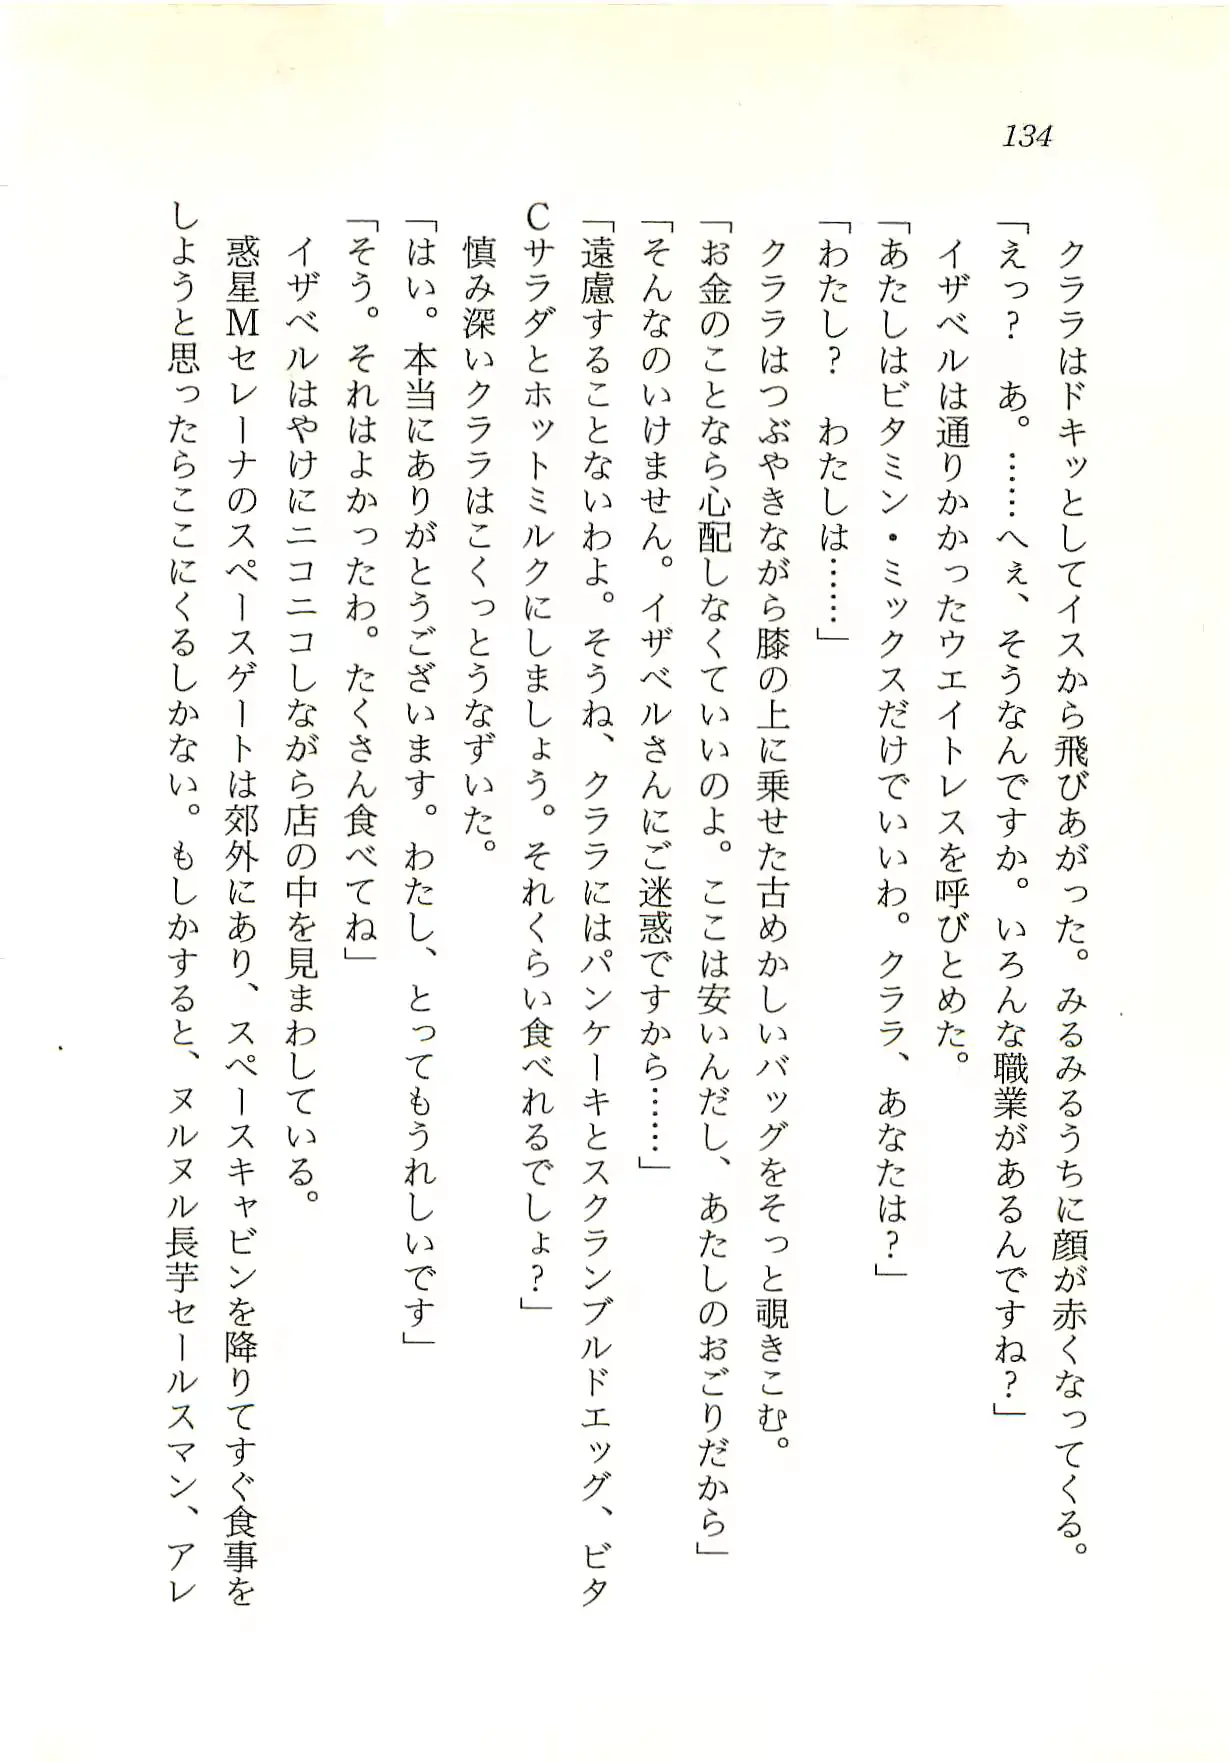 134
　クララはドキッとしてイスから飛びあがった。みるみるうちに顔が赤くなってくる。
「えっ？　あ。……へぇ、そうなんですか。いろんな職業があるんですね？」
　イザベルは通りかかったウエイトレスを呼びとめた。
「あたしはビタミン・ミックスだけでいいわ。クララ、あなたは？」
「わたし？　わたしは……」
　クララはつぶやきながら膝の上に乗せた古めかしいバッグをそっと覗きこむ。
「お金のことなら心配しなくていいのよ。ここは安いんだし、あたしのおごりだから」
「そんなのいけません。イザベルさんにご迷惑ですから……」
「遠慮することないわよ。そうね、クララにはパンケーキとスクランブルドエッグ、ビタ
Cサラダとホットミルクにしましょう。それくらい食べれるでしょ？」
　慎み深いクララはこくっとうなずいた。
「はい。本当にありがとうございます。わたし、とってもうれしいです」
「そう。それはよかったわ。たくさん食べてね」
　イザベルはやけにニコニコしながら店の中を見まわしている。
　惑星Mセレーナのスペースゲートは郊外にあり、スペースキャビンを降りてすぐ食事を
しようと思ったらここにくるしかない。もしかすると、ヌルヌル長芋セールスマン、アレ